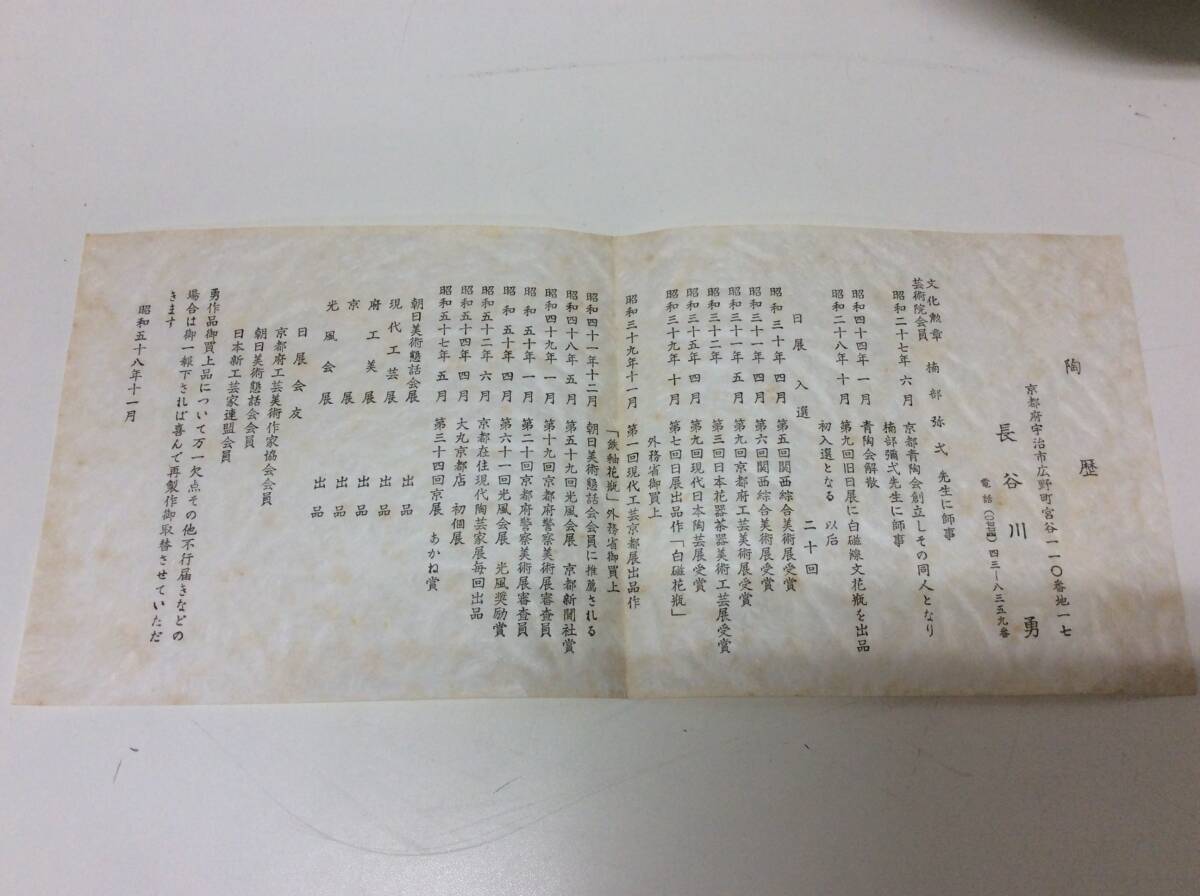 陶歴
京都府宇治市広野町宮谷一一〇番地一七
長谷川勇
電話(〇七七四)四三―八三五九番
文化勲章
芸術院会員 楠部弥弌 先生に師事
昭和二十七年 六月 京都青陶会創立しその同人となり
楠部彌弌先生に師事
昭和四十四年 一月 青陶会解散
昭和二十八年 十月 第九回旧日展に白磁線文花瓶を出品
初入選となる 以后
日展入選 二十回
昭和三十年 四月 第五回関西綜合美術展受賞
昭和三十一年 四月 第六回関西綜合美術展受賞
昭和三十一年 五月 第九回京都府工芸美術展受賞
昭和三十二年 第三回日本花器茶器美術工芸展受賞
昭和三十五年 四月 第九回現代日本陶芸展受賞
昭和三十九年 十月 第七回日展出品作「白磁花瓶」
外務省御買上
昭和三十九年十一月 第一回現代工芸京都展出品作
「鉄釉花瓶」外務省御買上
昭和四十一年十二月 朝日美術懇話会会員に推薦される
昭和四十八年 五月 第五十九回光風会展 京都新聞社賞
昭和四十九年 一月 第十九回京都府警察美術展審査員
昭和五十年 一月 第二十回京都府警察美術展審査員
昭和五十年 四月 第六十一回光風会展 光風奨励賞
昭和五十二年 六月 京都在住現代陶芸家展毎回出品
昭和五十四年 四月 大丸京都店 初個展
昭和五十七年 五月 第三十四回京展 あかね賞
朝日美術懇話会展 出品
現代工芸展 出品
府工美展 出品
京展 出品
光風会展 出品
日展会友
京都府工芸美術作家協会会員
朝日美術懇話会会員
日本新工芸家連盟会員
勇作品御買上品について万一欠点その他不行届きなどの
場合は御一報下されば喜んで再製作御取替させていただ
きます
昭和五十八年十一月